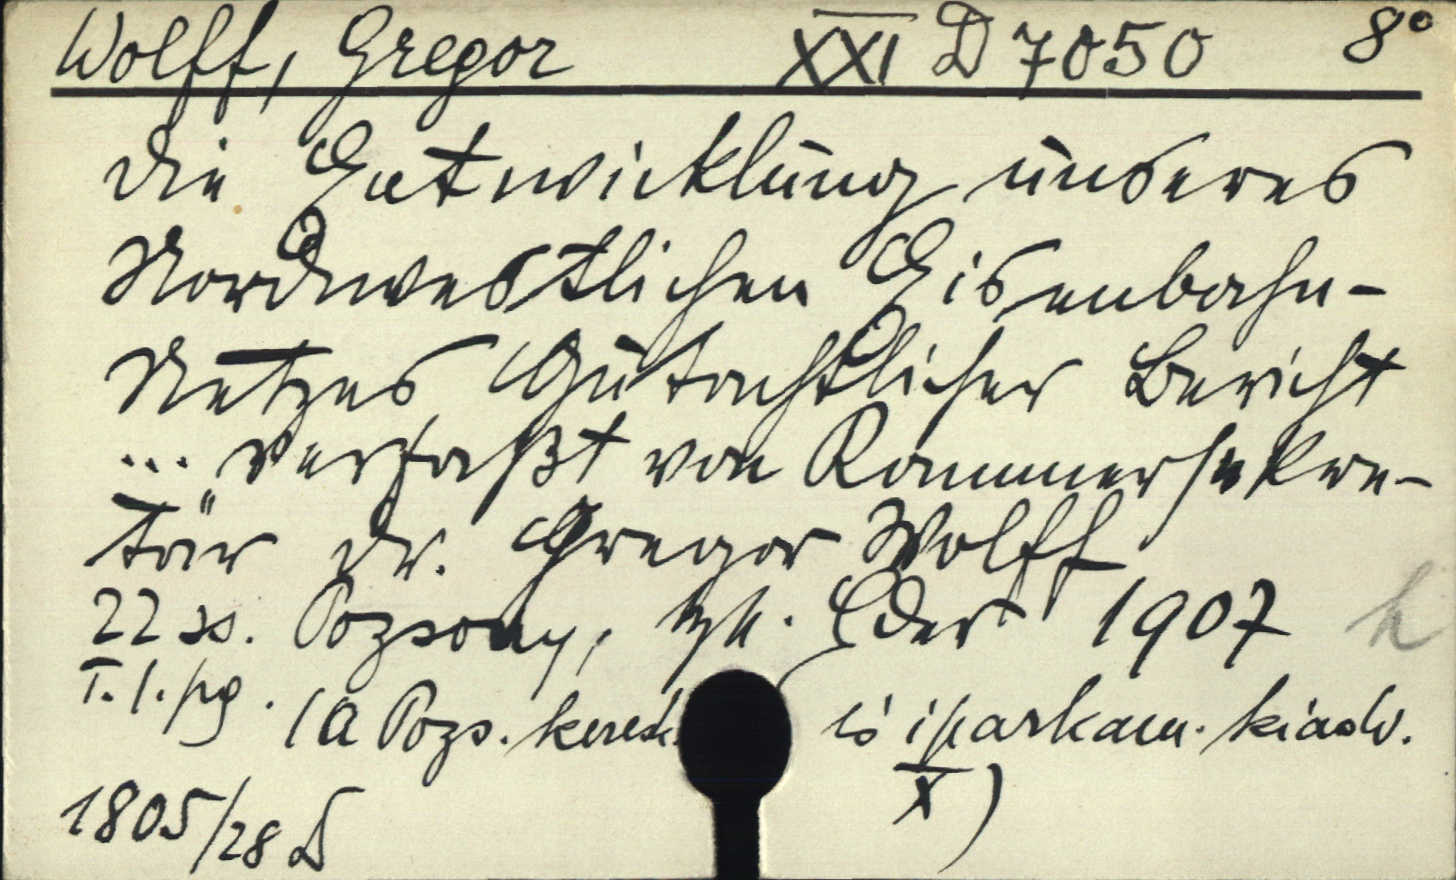 Wolff, Gregor XXI D 7050 8°
Die Entwicklung unseres
Nordwestlichen Eisenbahn-
Netzes Gutachtlicher Bericht
... verfaßt von Kammersekre-
tär Dr. Gregor Wolff
22 ss. Pozsony, Eder 1907 h
T. l. pg. (A Pozs. keresk. és iparkam. kiadv.
X)
1805/28 D